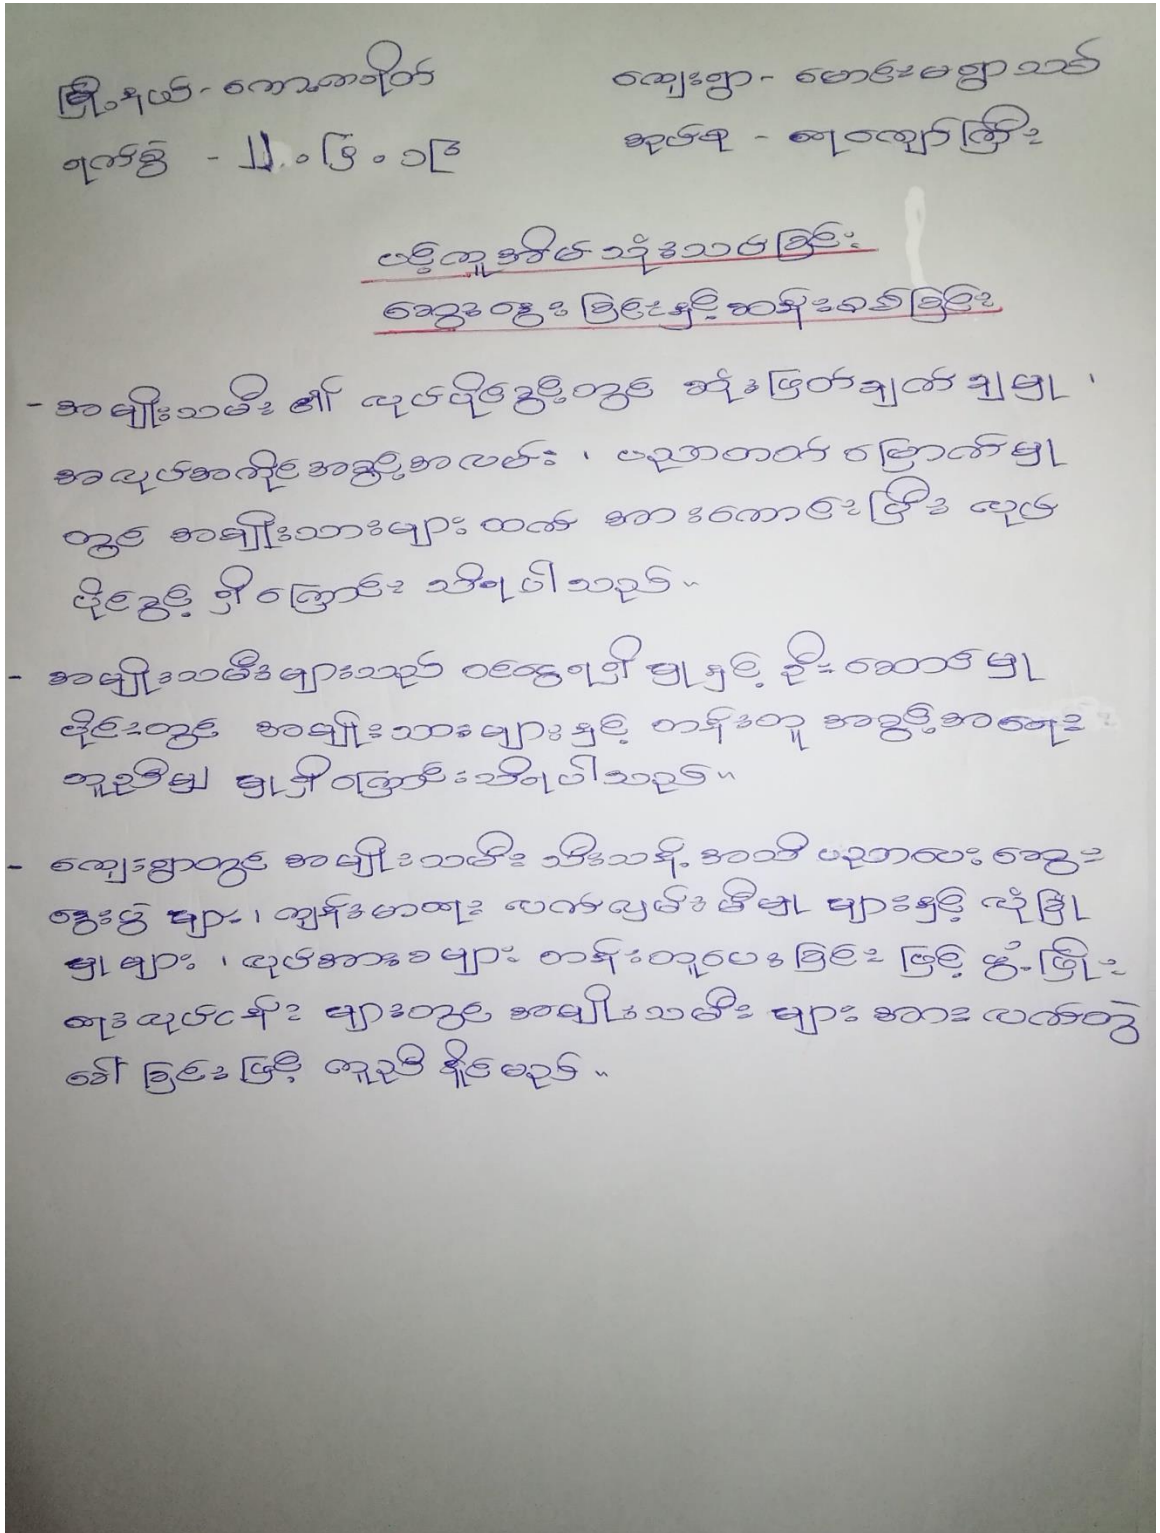 မြို့နယ် - ကော့ကရိတ် ကျေးရွာ - မောင်းမရွာသစ်
ရက်စွဲ - ၂၂.၆.၁၆ အုပ်စု - ရေကျော်ကြီး
ပင့်ကူအိမ်သုံးသပ်ခြင်း
ဆွေးနွေးခြင်းနှင့်ဆန်းစစ်ခြင်း
- အမျိုးသမီး၏ လုပ်ပိုင်ခွင့်တွင် ဆုံးဖြတ်ချက်ချမှု ၊
အလုပ်အကိုင်အခွင့်အလမ်း ၊ ပညာတတ်မြောက်မှု
တွင် အမျိုးသားများထက် အားကောင်းပြီး လုပ်
ပိုင်ခွင့် ရှိကြောင်း သိရပါသည်။
- အမျိုးသမီးများသည် ဝင်ငွေရရှိမှုနှင့် ဦးဆောင်မှု
ပိုင်းတွင် အမျိုးသားများနှင့် တန်းတူ အခွင့်အရေး
တူညီမျှ မှုရှိကြောင်းသိရပါသည်။
- ကျေးရွာတွင် အမျိုးသမီး သီးသန့် အသိပညာပေး ဆွေး
နွေးပွဲ များ၊ ကျန်းမာရေး လက်လှမ်းမီမှု များနှင့် လုံခြုံ
မှုများ ၊ လုပ်အားခများ တန်းတူပေးခြင်း ဖြင့် ဖွံ့ဖြိုး
ရေးလုပ်ငန်း များတွင် အမျိုးသမီး များ အားလက်တွဲ
ခေါ်ခြင်းဖြင့် ကူညီနိုင်မည်။